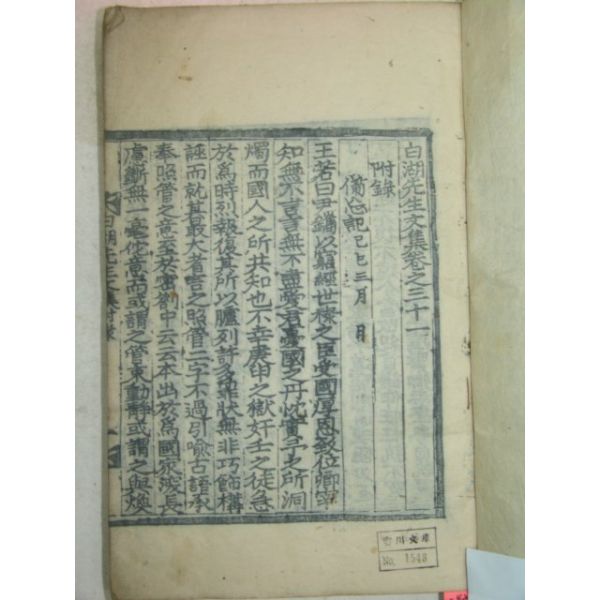 白湖先生文集卷之三十一
附錄
備忘記 己巳三月 日
王若曰尹鑴以窮經世㮨之臣受國厚恩致位卿宰
知無不言言無不盡愛君憂國之丹忱實予之所洞
燭而國人之所共知也不幸庚申之獄奸壬之徒急
於爲時烈報復其所以臚列許多罪狀無非巧飾構
誣而就其最大者言之照管二字不過引喩古語承
奉照管之意至於密劄中云云本出於爲國家深長
慮斷無一毫他意而或謂之管束動靜或謂之與煥
白湖先生文集附錄
No. 1548